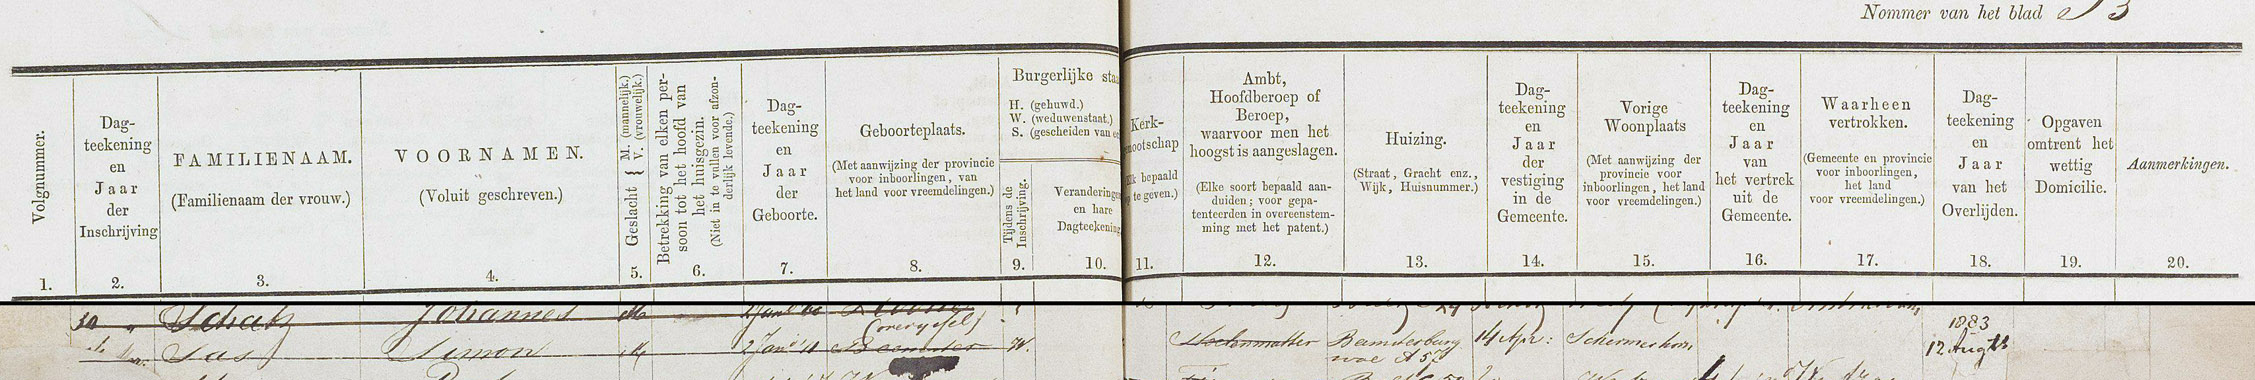 Nommer van het blad
Volgnummer.
1.
Dag-
teekening
en
Jaar
der
Inschrijving
2.
FAMILIENAAM.
(Familienaam der vrouw.)
3.
VOORNAMEN.
(Voluit geschreven.)
4.
Geslacht { M. (mannelijk.)
V. (vrouwelijk.)
5.
Betrekking van elken per-
soon tot het hoofd van
het huisgezin.
(Niet in te vullen voor afzon-
derlijk levende.)
6.
Dag-
teekening
en
Jaar
der
Geboorte.
7.
Geboorteplaats.
(Met aanwijzing der provincie
voor inboorlingen, van
het land voor vreemdelingen.)
8.
Burgerlijke sta
H. (gehuwd.)
W. (weduwenstaat.)
S. (gescheiden van
Tijdens de
Inschrijving.
9.
Veranderingen
en hare
Dagteekening
10.
Kerk-
nootschap
bepaald
te geven.)
11.
Ambt,
Hoofdberoep of
Beroep,
waarvoor men het
hoogst is aangeslagen.
(Elke soort bepaald aan-
duiden; voor gepa-
tenteerden in overeenstem-
ming met het patent.)
12.
Huizing.
(Straat, Gracht enz.,
Wijk, Huisnummer.)
13.
Dag-
teekening
en
Jaar
der
vestiging
in de
Gemeente.
14.
Vorige
Woonplaats
(Met aanwijzing der
provincie voor
inboorlingen, het land
voor vreemdelingen.)
15.
Dag-
teekening
en
Jaar
van
het vertrek
uit de
Gemeente.
16.
Waarheen
vertrokken.
(Gemeente en provincie
voor inboorlingen,
het land
voor vreemdelingen.)
17.
Dag-
teekening
en
Jaar
van het
Overlijden.
18.
Opgaven
omtrent het
wettig
Domicilie.
19.
Aanmerkingen.
20.
Schatz Johannes M
(overijssel)
Sas Simon M Beemster W. 14 Apr: Schermerhorn 1883
12 Aug